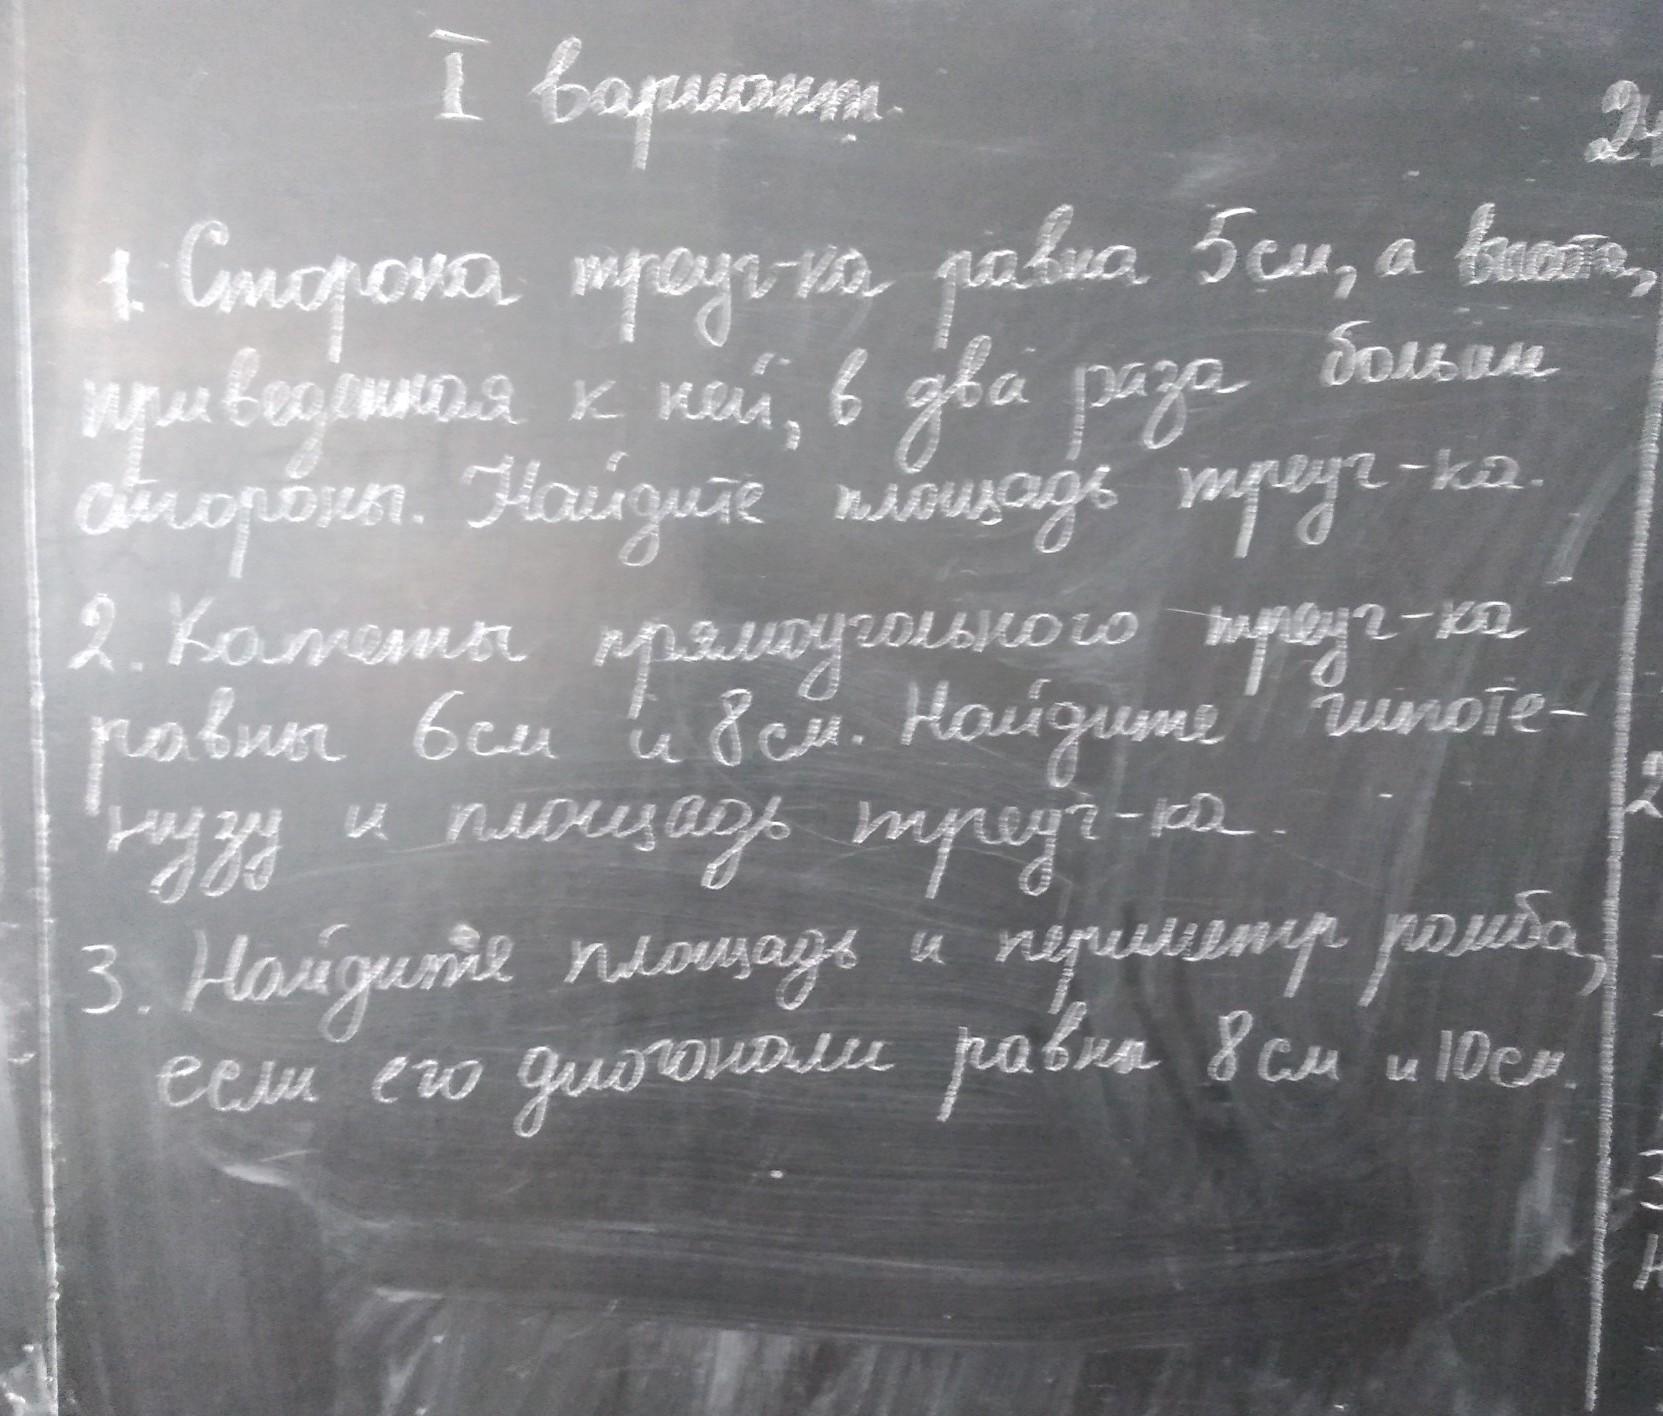 I вариант.
1. Сторона треуг-ка равна 5см, а высота,
приведенная к ней, в два раза больше
стороны. Найдите площадь треуг-ка.
2. Катеты прямоугольного треуг-ка
равны 6см и 8см. Найдите гипоте-
нузу и площадь треуг-ка.
3. Найдите площадь и периметр ромба,
если его диогонали равны 8см и 10см.